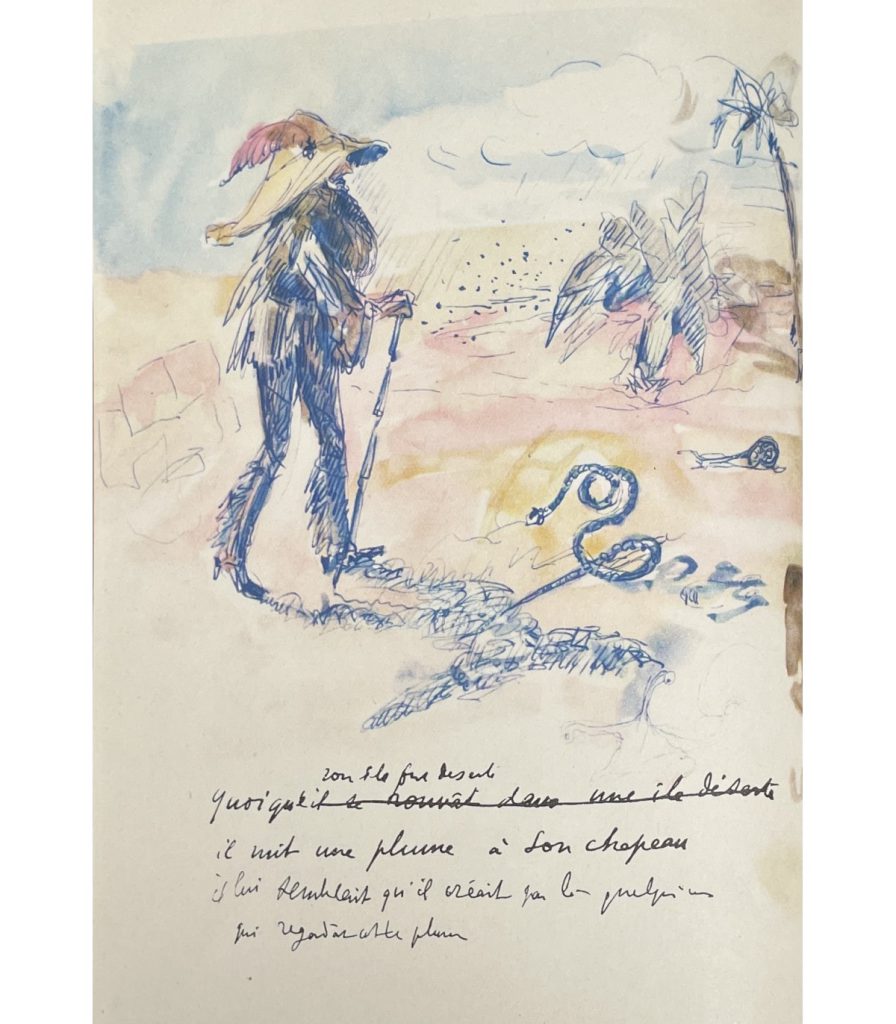 son île fut deserte
Quoiqu'il se trouvât dans une ile déserte
il mit une plume à son chapeau
il lui semblait qu'il créait par là quelqu'un
qui regardât cette plume